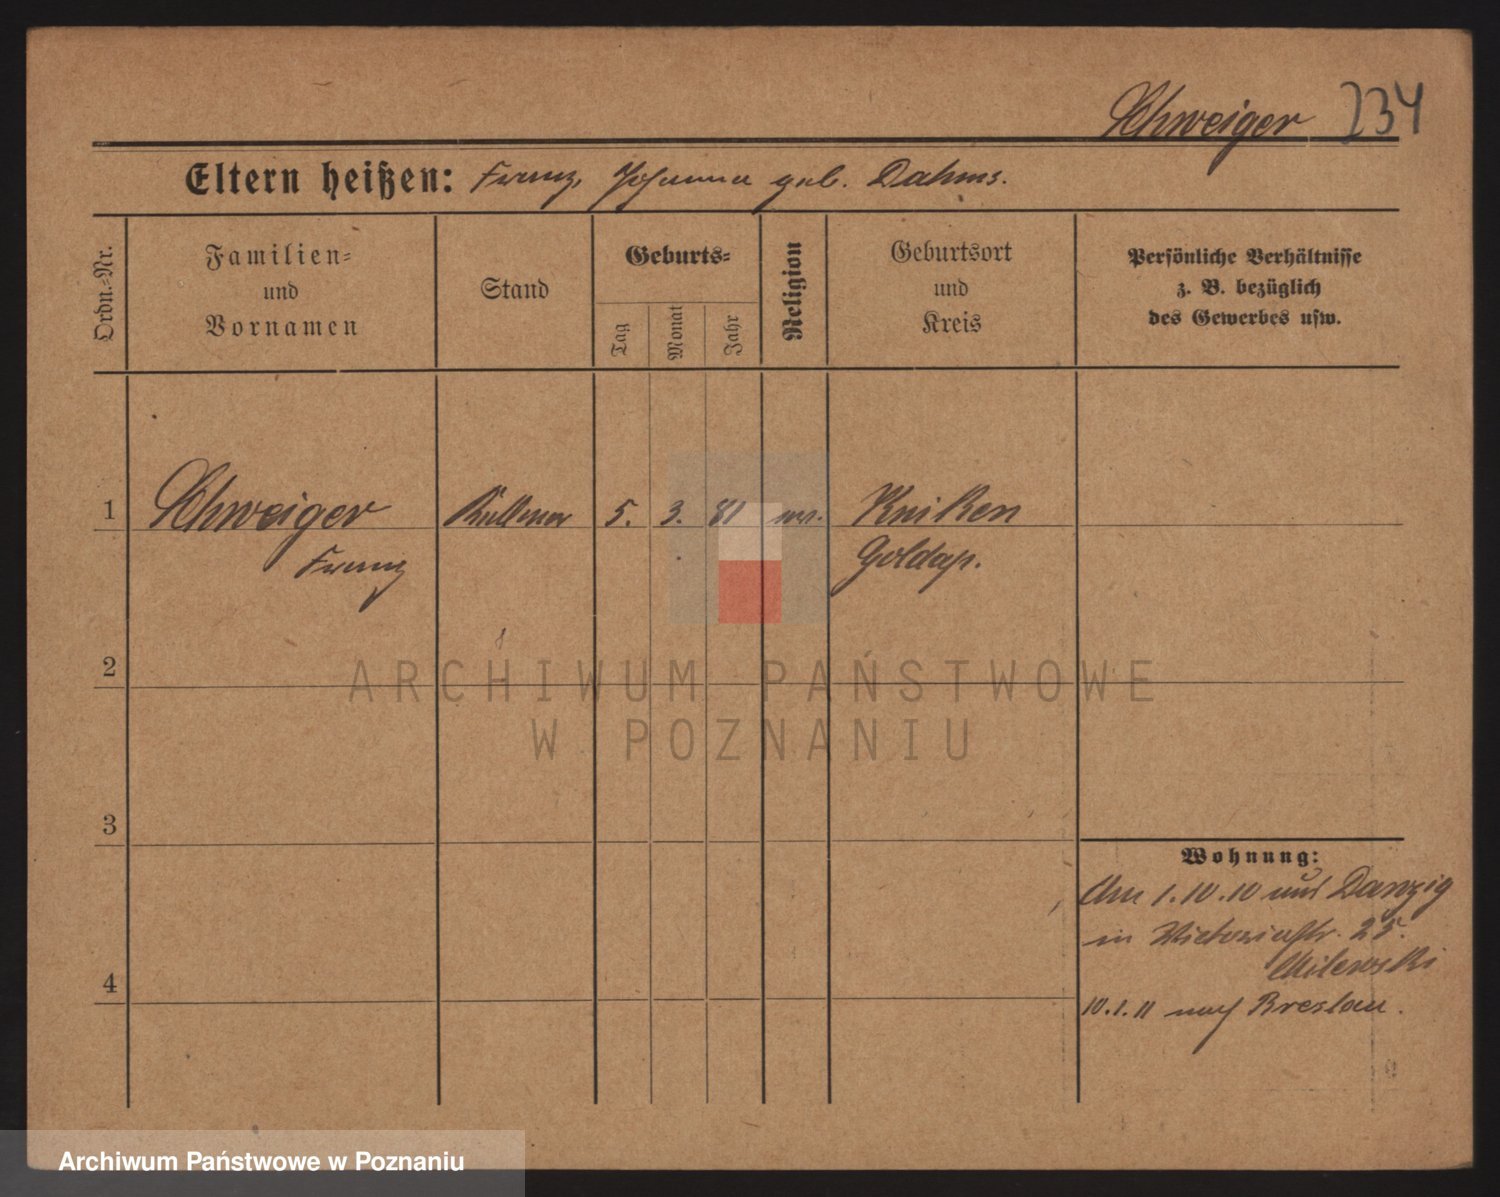 Schweiger 234
Eltern heißen: Franz, Johanna geb. Dahms.
Ordn.-Nr.
Familien-
und
Vornamen
Stand
Geburts-
Tag
Monat
Jahr
Religion
Geburtsort
und
Kreis
Persönliche Verhältnisse
z. B. bezüglich
des Gewerbes usw.
1 Schweiger Kellner 5. 3. 81
Franz Goldap.
2
3
4
Wohnung:
Am 1.10.10 aus Danzig
in Victoriastr. 25.
Milewski
10.1.11 nach Breslau.
ARCHIWUM PAŃSTWOWE
W POZNANIU
Archiwum Państwowe w Poznaniu